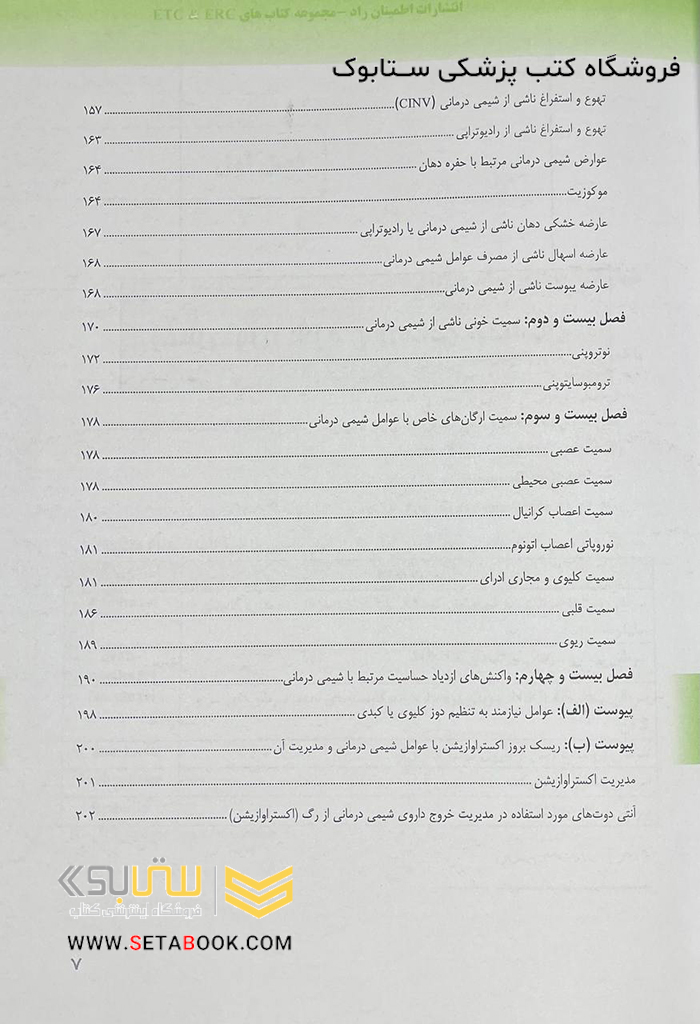 انتشارات اطمینان راد - مجموعه کتاب های ETC & ERC
فروشگاه کتب پزشکی ستابوک
تهوع و استفراغ ناشی از شیمی درمانی (CINV) ۱۵۷
تهوع و استفراغ ناشی از رادیوتراپی ۱۶۳
عوارض شیمی درمانی مرتبط با حفره دهان ۱۶۴
موکوزیت ۱۶۴
عارضه خشکی دهان ناشی از شیمی درمانی یا رادیوتراپی ۱۶۷
عارضه اسهال ناشی از مصرف عوامل شیمی درمانی ۱۶۸
عارضه یبوست ناشی از شیمی درمانی ۱۶۸
فصل بیست و دوم: سمیت خونی ناشی از شیمی درمانی ۱۷۰
نوتروپنی ۱۷۲
ترومبوسایتوپنی ۱۷۶
فصل بیست و سوم: سمیت ارگان‌های خاص با عوامل شیمی درمانی ۱۷۸
سمیت عصبی ۱۷۸
سمیت عصبی محیطی ۱۷۸
سمیت اعصاب کرانیال ۱۸۰
نوروپاتی اعصاب اتونوم ۱۸۱
سمیت کلیوی و مجاری ادرای ۱۸۱
سمیت قلبی ۱۸۶
سمیت ریوی ۱۸۹
فصل بیست و چهارم: واکنش‌های ازدیاد حساسیت مرتبط با شیمی درمانی ۱۹۰
پیوست (الف): عوامل نیازمند به تنظیم دوز کلیوی یا کبدی ۱۹۸
پیوست (ب): ریسک بروز اکستراوازیشن با عوامل شیمی درمانی و مدیریت آن ۲۰۰
مدیریت اکستراوازیشن ۲۰۱
آنتی دوت‌های مورد استفاده در مدیریت خروج داروی شیمی درمانی از رگ (اکستراوازیشن) ۲۰۲
ستابوک
فروشگاه اینترنتی کتاب
WWW.SETABOOK.COM
۷